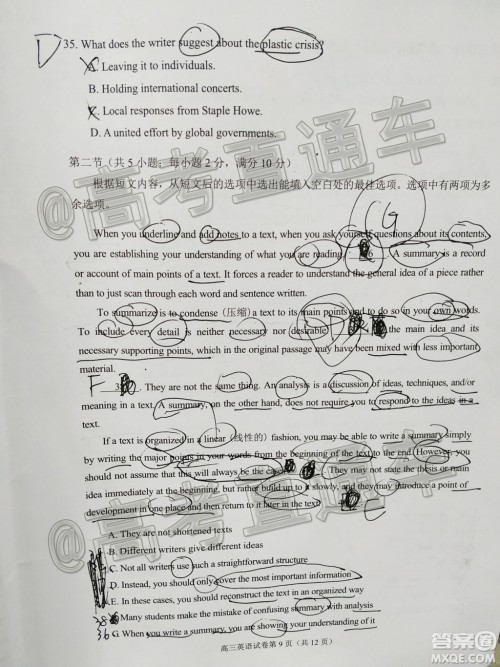 D 35. What does the writer suggest about the plastic crisis?
A. Leaving it to individuals.
B. Holding international concerts.
C. Local responses from Staple Howe.
D. A united effort by global governments.
第二节（共5小题；每小题2分，满分10分）
根据短文内容，从短文后的选项中选出能填入空白处的最佳选项。选项中有两项为多
余选项。
G
When you underline and add notes to a text, when you ask yourself questions about its contents,
you are establishing your understanding of what you are reading. A summary is a record
or account of main points of a text. It forces a reader to understand the general idea of a piece rather
than to just scan through each word and sentence written.
To summarize is to condense（压缩）a text to its main points and to do so in your own words.
To include every detail is neither necessary nor desirable. D the main idea and its
necessary supporting points, which in the original passage may have been mixed with less important
material.
F . They are not the same thing. An analysis is a discussion of ideas, techniques, and/or
meaning in a text. A summary, on the other hand, does not require you to respond to the ideas in a
text.
If a text is organized in a linear（线性的）fashion, you may be able to write a summary simply
by writing the major points in your words from the beginning of the text to the end. However, you
should not assume that this will always be the case. They may not state the thesis or main
idea immediately at the beginning, but rather build up to it slowly, and they may introduce a point of
development in one place and then return to it later in the text.
A. They are not shortened texts
B. Different writers give different ideas
C. Not all writers use such a straightforward structure
D. Instead, you should only cover the most important information
E. In these cases, you should reconstruct the text in an organized way
38 F. Many students make the mistake of confusing summary with analysis
36 G. When you write a summary, you are showing your understanding of it
高三英语试卷第 9 页（共 12 页）
@高考直通车
@高考直通车
答案圈
MXQE.COM